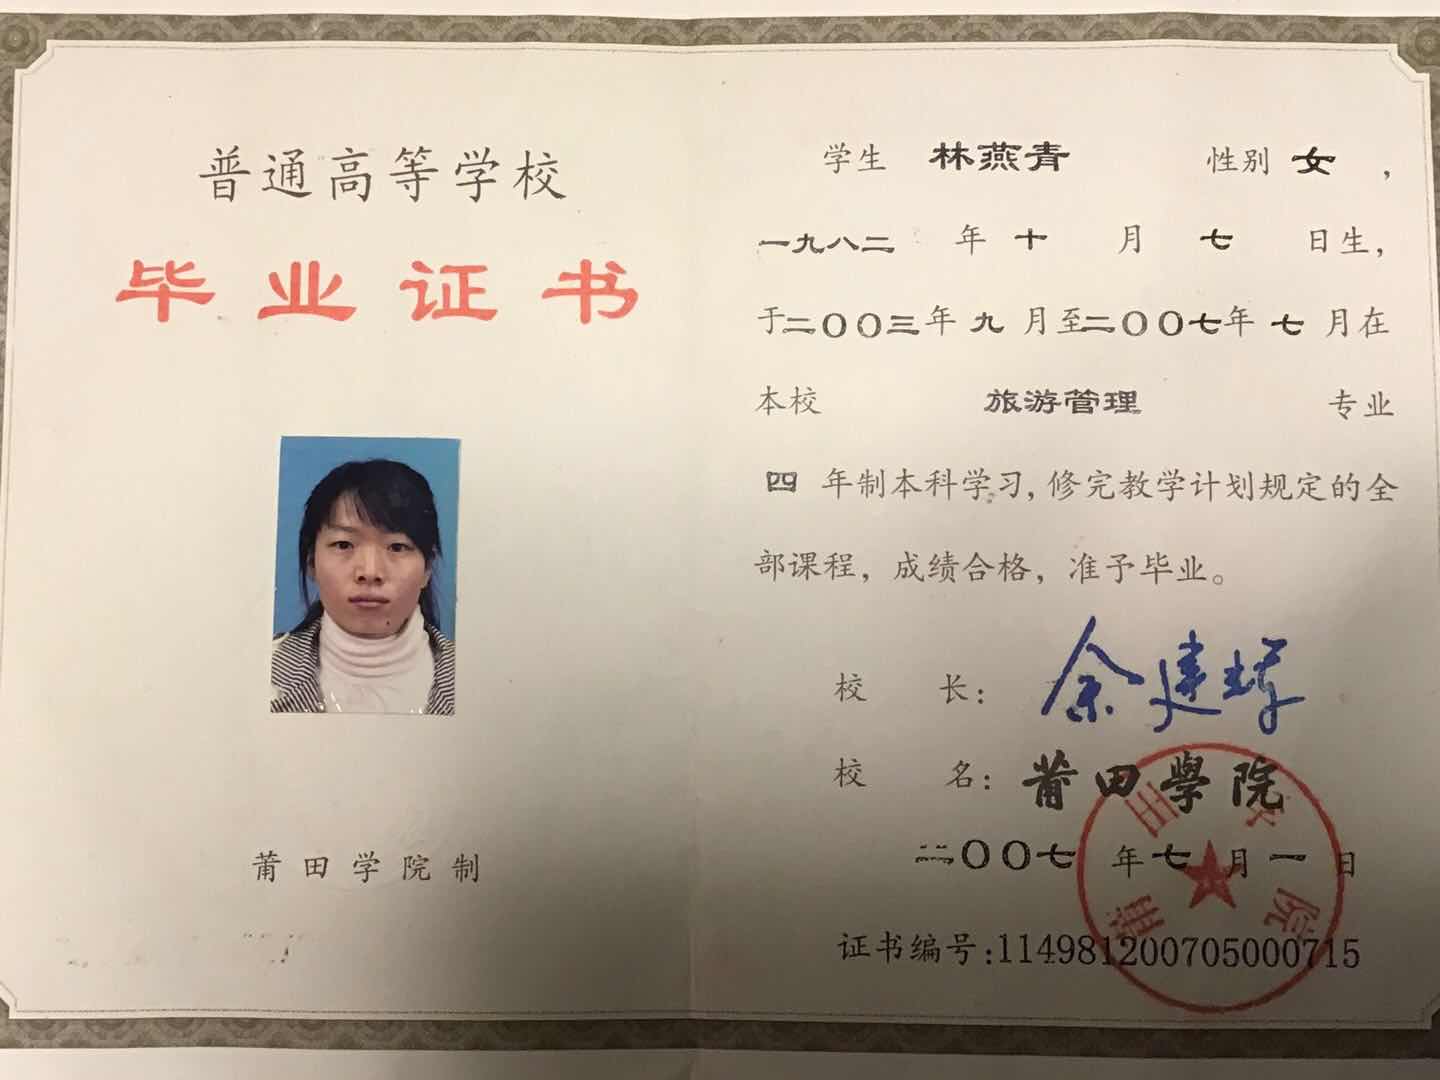 普通高等学校
毕业证书
莆田学院制
学生 林燕青 性别 女，
一九八二 年 十 月 七 日生，
于二〇〇三年 九 月至二〇〇七年 七 月在
本校 旅游管理 专业
四 年制本科学习，修完教学计划规定的全
部课程，成绩合格，准予毕业。
校 长：余建辉
校 名：莆田學院
二〇〇七 年 七 月 一 日
莆田学院
证书编号：114981200705000715